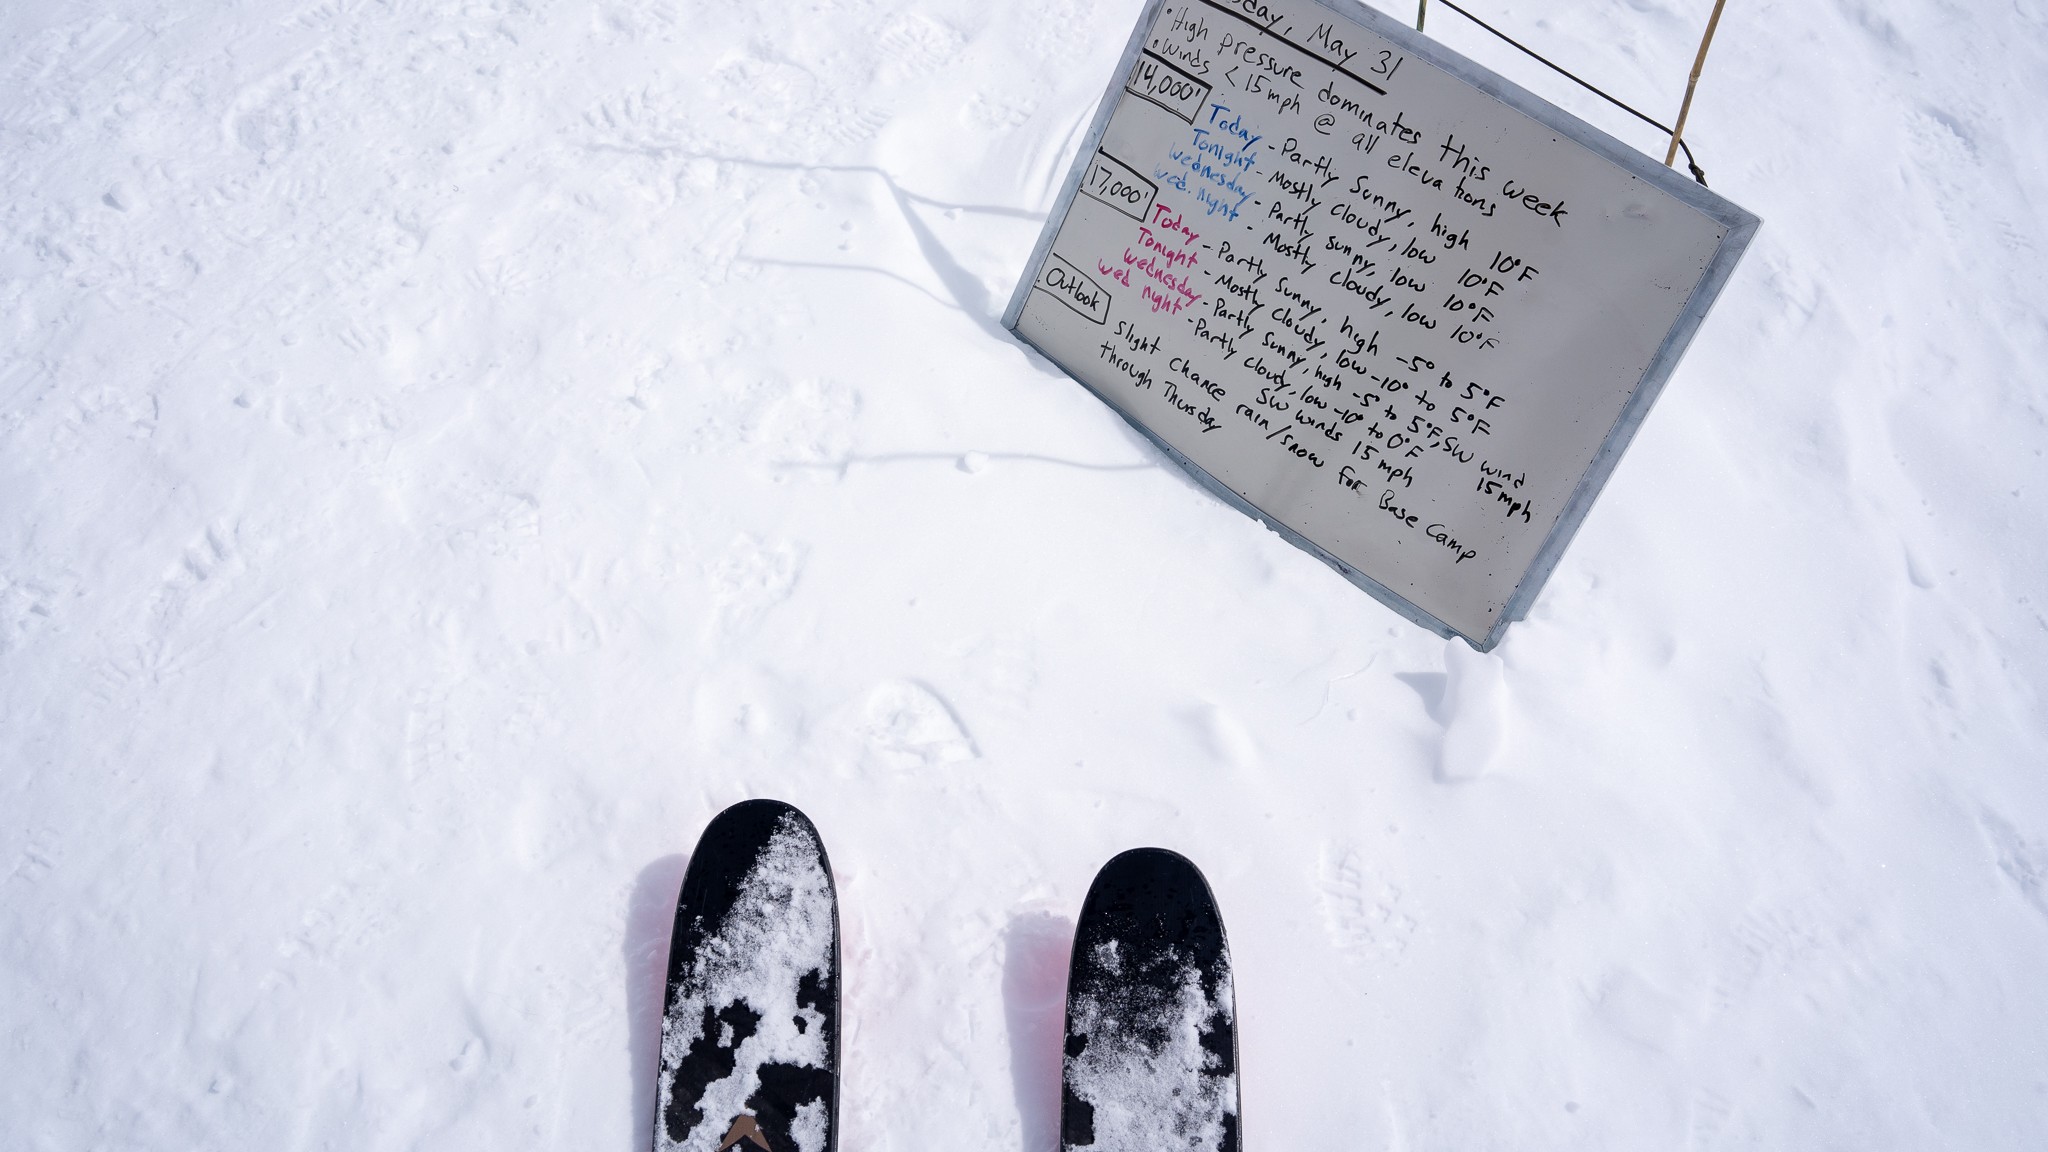 day, May 31
• High pressure dominates this week
• Winds < 15 mph @ all elevations
14,000'
Today - Partly Sunny, high 10°F
Tonight - Mostly cloudy, low 10°F
Wednesday - Partly sunny, low 10°F
Wed. night - Mostly cloudy, low 10°F
17,000'
Today - Partly sunny, high -5° to 5°F
Tonight - Mostly cloudy, low -10° to 5°F
Wednesday - Partly sunny, high -5° to 5°F, SW wind 15 mph
Wed night - Partly cloudy, low -10° to 0°F
SW winds 15 mph
Outlook
Slight chance rain/snow for Base Camp
through Thursday